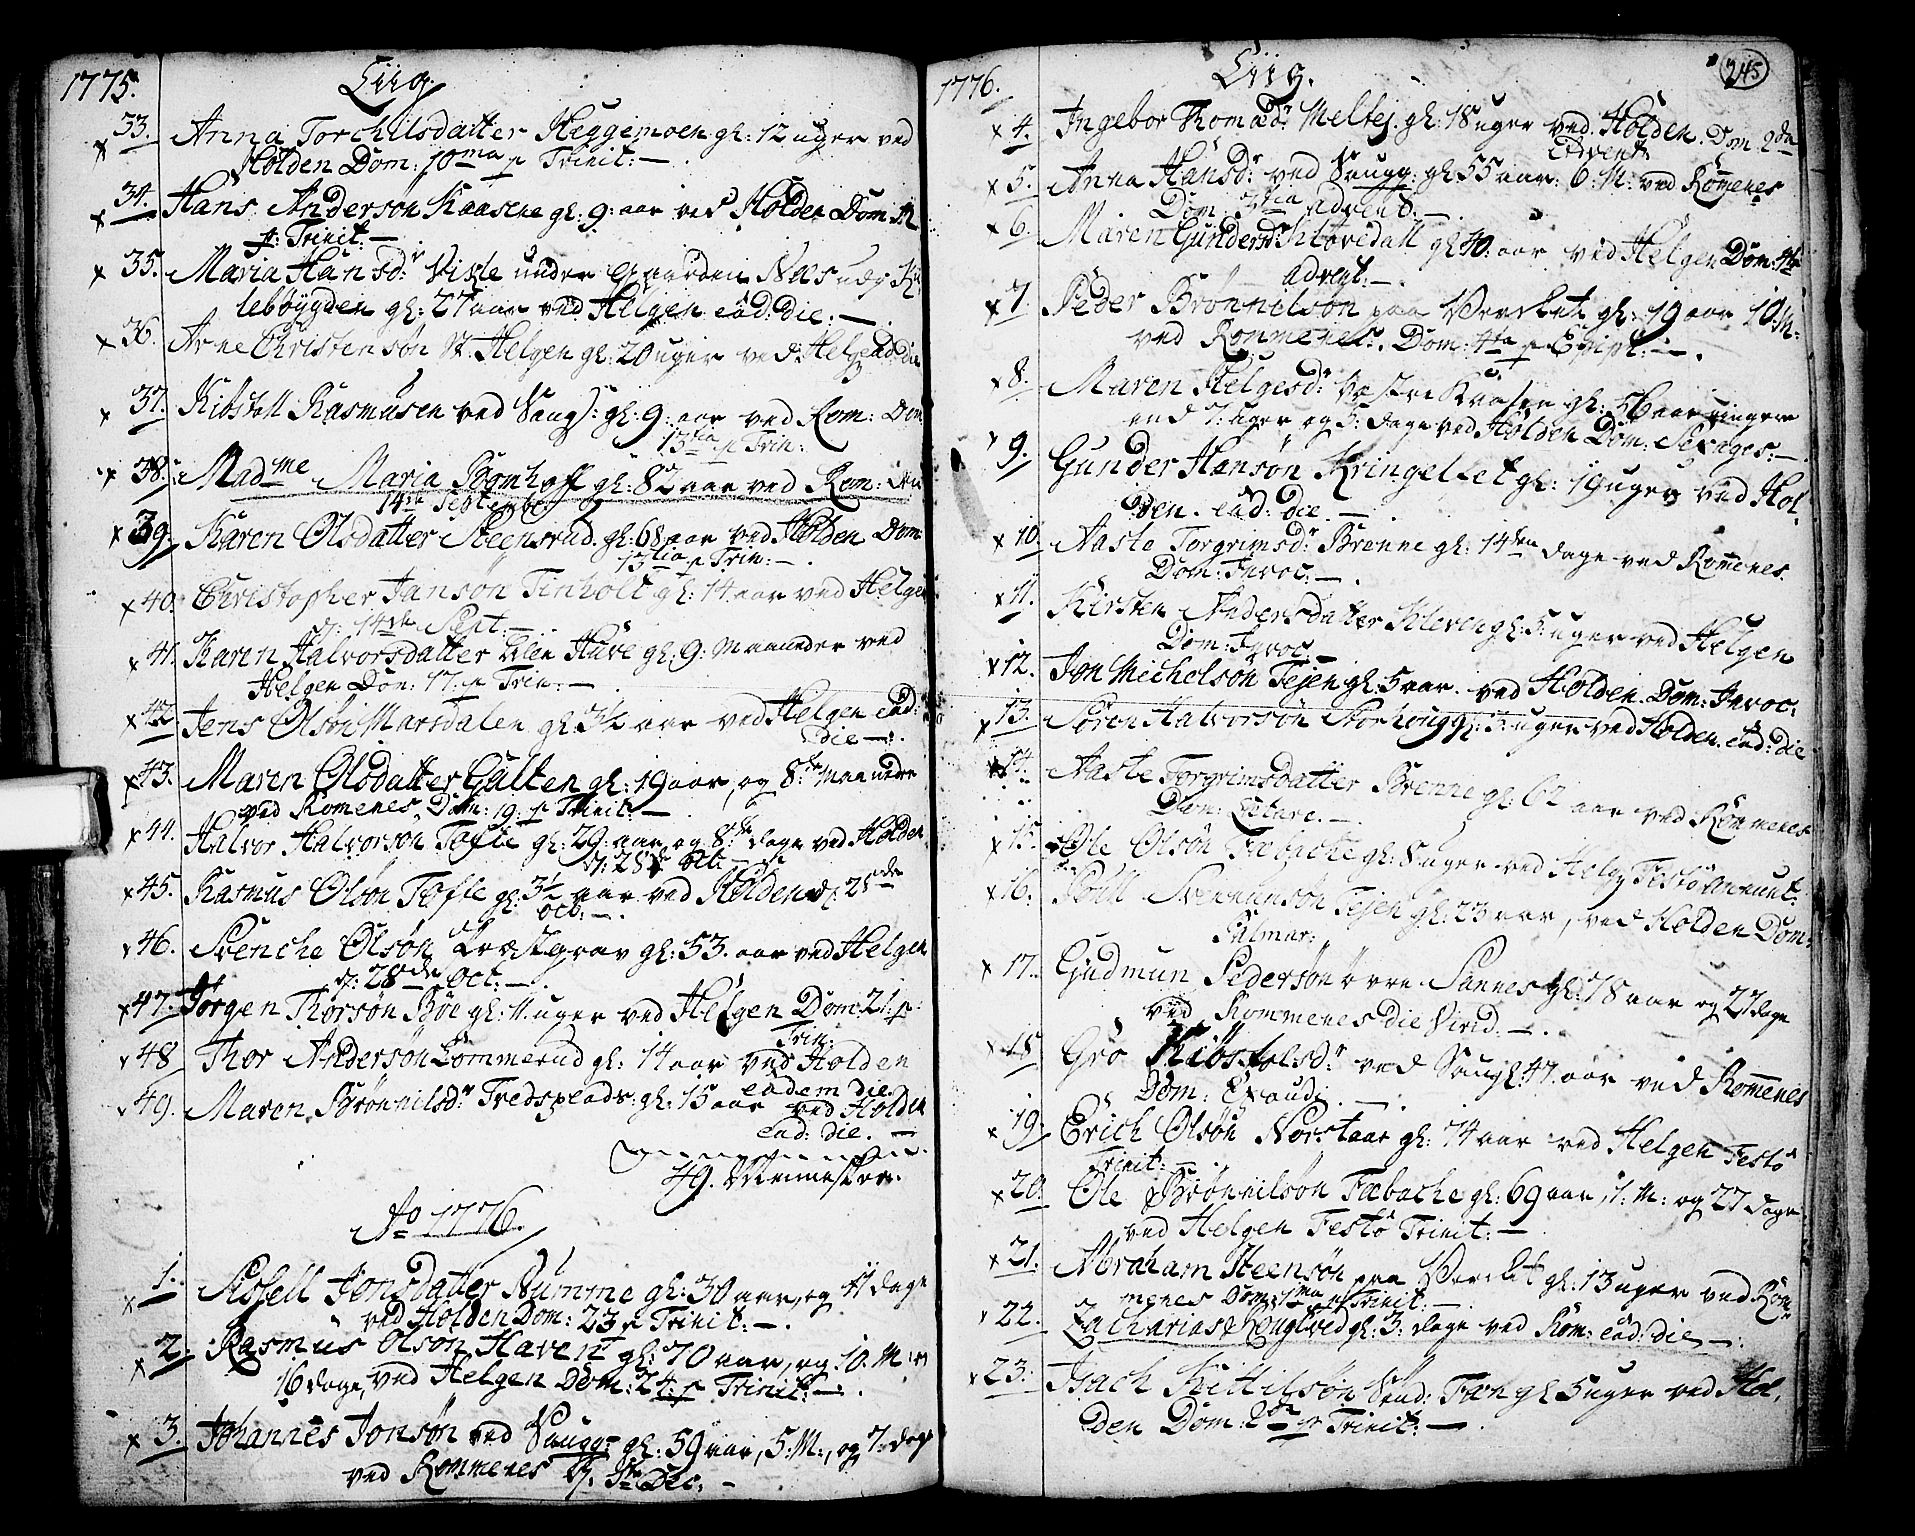 1775. Liig.
33. Anna Torchilsdatter Heggemoen gl: 12 uger ved
Holden Dom: 10ma p Trinit: —
34. Hans Anderson Kaasene gl: 9: aar ved Holden Dom:
p: Trinit: —
35. Maria Hansd:r Visle under Gaarden Næs
lebøygden gl: 27 aar ved Helgen ead: die: —
36. Arne Christensøn St: Helgen gl: 20 uger ved Helgen ead: die
37. Kibstell Rasmusen ved gl: 9: aar ved Rom: Dom
13tia p Trin:
38. Madme Maria Bomhoff gl: 82 aar ved Rom:
14de Septembr
39. Karen Olsdatter Steensrud gl: 68 aar ved Holden Dom:
13tia p Trin: —
40. Christopher Janson Tinholt gl: 14 aar ved Helgen
d: 14de Sept: —
41. Karen Halvorsdatter Hûve gl: 9: Maaneder ved
Helgen Dom: 17. p Trin: —
42. Jens Olsøn Marsdalen gl: 3½ aar ved Helgen ead:
die —
43. Maren Olsdatter Gulten gl: 19 aar, og 8te Maaneder
ved Romenes Dom: 19. p Trinit: —
44. Halvor Halvorson Tofte gl: 29 aar og 8te dage ved Holden
d: 28de Oct: —
45. Rasmus Olsøn Tofte gl: 3½ aar ved Holden d: 28de
Oct: —
46. Svenche Olsøn gl: 53. aar ved Helgen
d: 28de Oct: —
47. Jørgen Thorsøn Bøe gl: 11 uger ved Helgen Dom: 21. p
Trin:
48 Thor Andersøn Lommerud gl: 14 aar ved Holden
eadem die
49. Maren Brønnilsd:r gl: 15 aar ved Holden
ead: die. —
49. Mennesker.
Ao 1776.
1. Sissell Jonsdatter Numme gl: 30 aar, og 11 dage
ved Holden Dom: 23 p Trinit: —
2. Rasmus Olson Haven gl: 70 aar, og 10. M:
16 dage, ved Helgen Dom: 24. p Trinit: —
3. Johannes Jonsøn ved Saugg: gl: 59 aar, 5: M:, og 7: dage
ved Rommenes d: 1te Dec: —
1776. Liig. 245
4. Ingebor Thomæd:r Meltej. gl: 18 uger ved Holden. Dom 2da
Advent:
5. Anna Hansd:r ved Saugg: gl: 55 aar: 6: M: ved Romenes
Dom 3tia Advent: —
6. Maren Gundersd:r Klovedall gl: 40. aar ved Helgen Dom: 4ta
Advent: —
7. Peder Brønnilsøn paa Verchet gl: 19 aar 10: M:
ved Rommenes. Dom: 4ta p Epiph: —
8. Maren Helgesd:r Kaasen gl: 56 aar ringere
end 7: uger og 5: dage ved Holden Dom: Sexages: —
9. Gunder Hansøn Kringellet gl: 19 uger ved Hol-
den. ead: die. —
10. Aaste Torgrimsd:r Brenne gl: 14ten dage ved Romenes
Dom: Invoc: —
11. Kirsten Andersdatter Kleven gl: 5: uger ved Helgen
Dom: Invoc: —
12. Jon Michelsøn Tejen gl: 5 aar. ved Holden. Dom: Invoc:
13. Søren Halvorsøn Storhougg gl: 3: uger ved Holden. ead: die
14. Aaste Torgrimsdatter Brenne gl: 62 aar ved Rommenes
Dom: Lætare. —
15. Ole Olsøn Fæbache gl: 8 uger ved Helg: Festo Annunt.
16. Poull Svennunson Tejen gl: 23 aar, ved Holden Dom:
Palmar:
17. Gudmun Pedersøn Øvre Sannes gl: 78 aar og 27 dage
ved Kommenes die Virid. —
18 Gro Kibstolsd:r ved Saug gl: 47. aar ved Romenes
Dom: Exaudi. —
19. Erich Olsøn Norstaar gl: 74 aar ved Helgen Festo
Trinit: —
20. Ole Brønnilsøn Fæbache gl: 69 aar, 1: M: og 27 dage
ved Helgen Festo Trinit: —
21. Abraham Steensøn paa Verchet gl: 13 uger ved Rom-
menes Dom: 1ma p Trinit: —
22. Zacharias gl: 3: dage ved Rom: ead: die —
23. Isach Kittilsøn Fæn gl: 5 uger ved Hol-
den Dom: 2da p Trinit: —